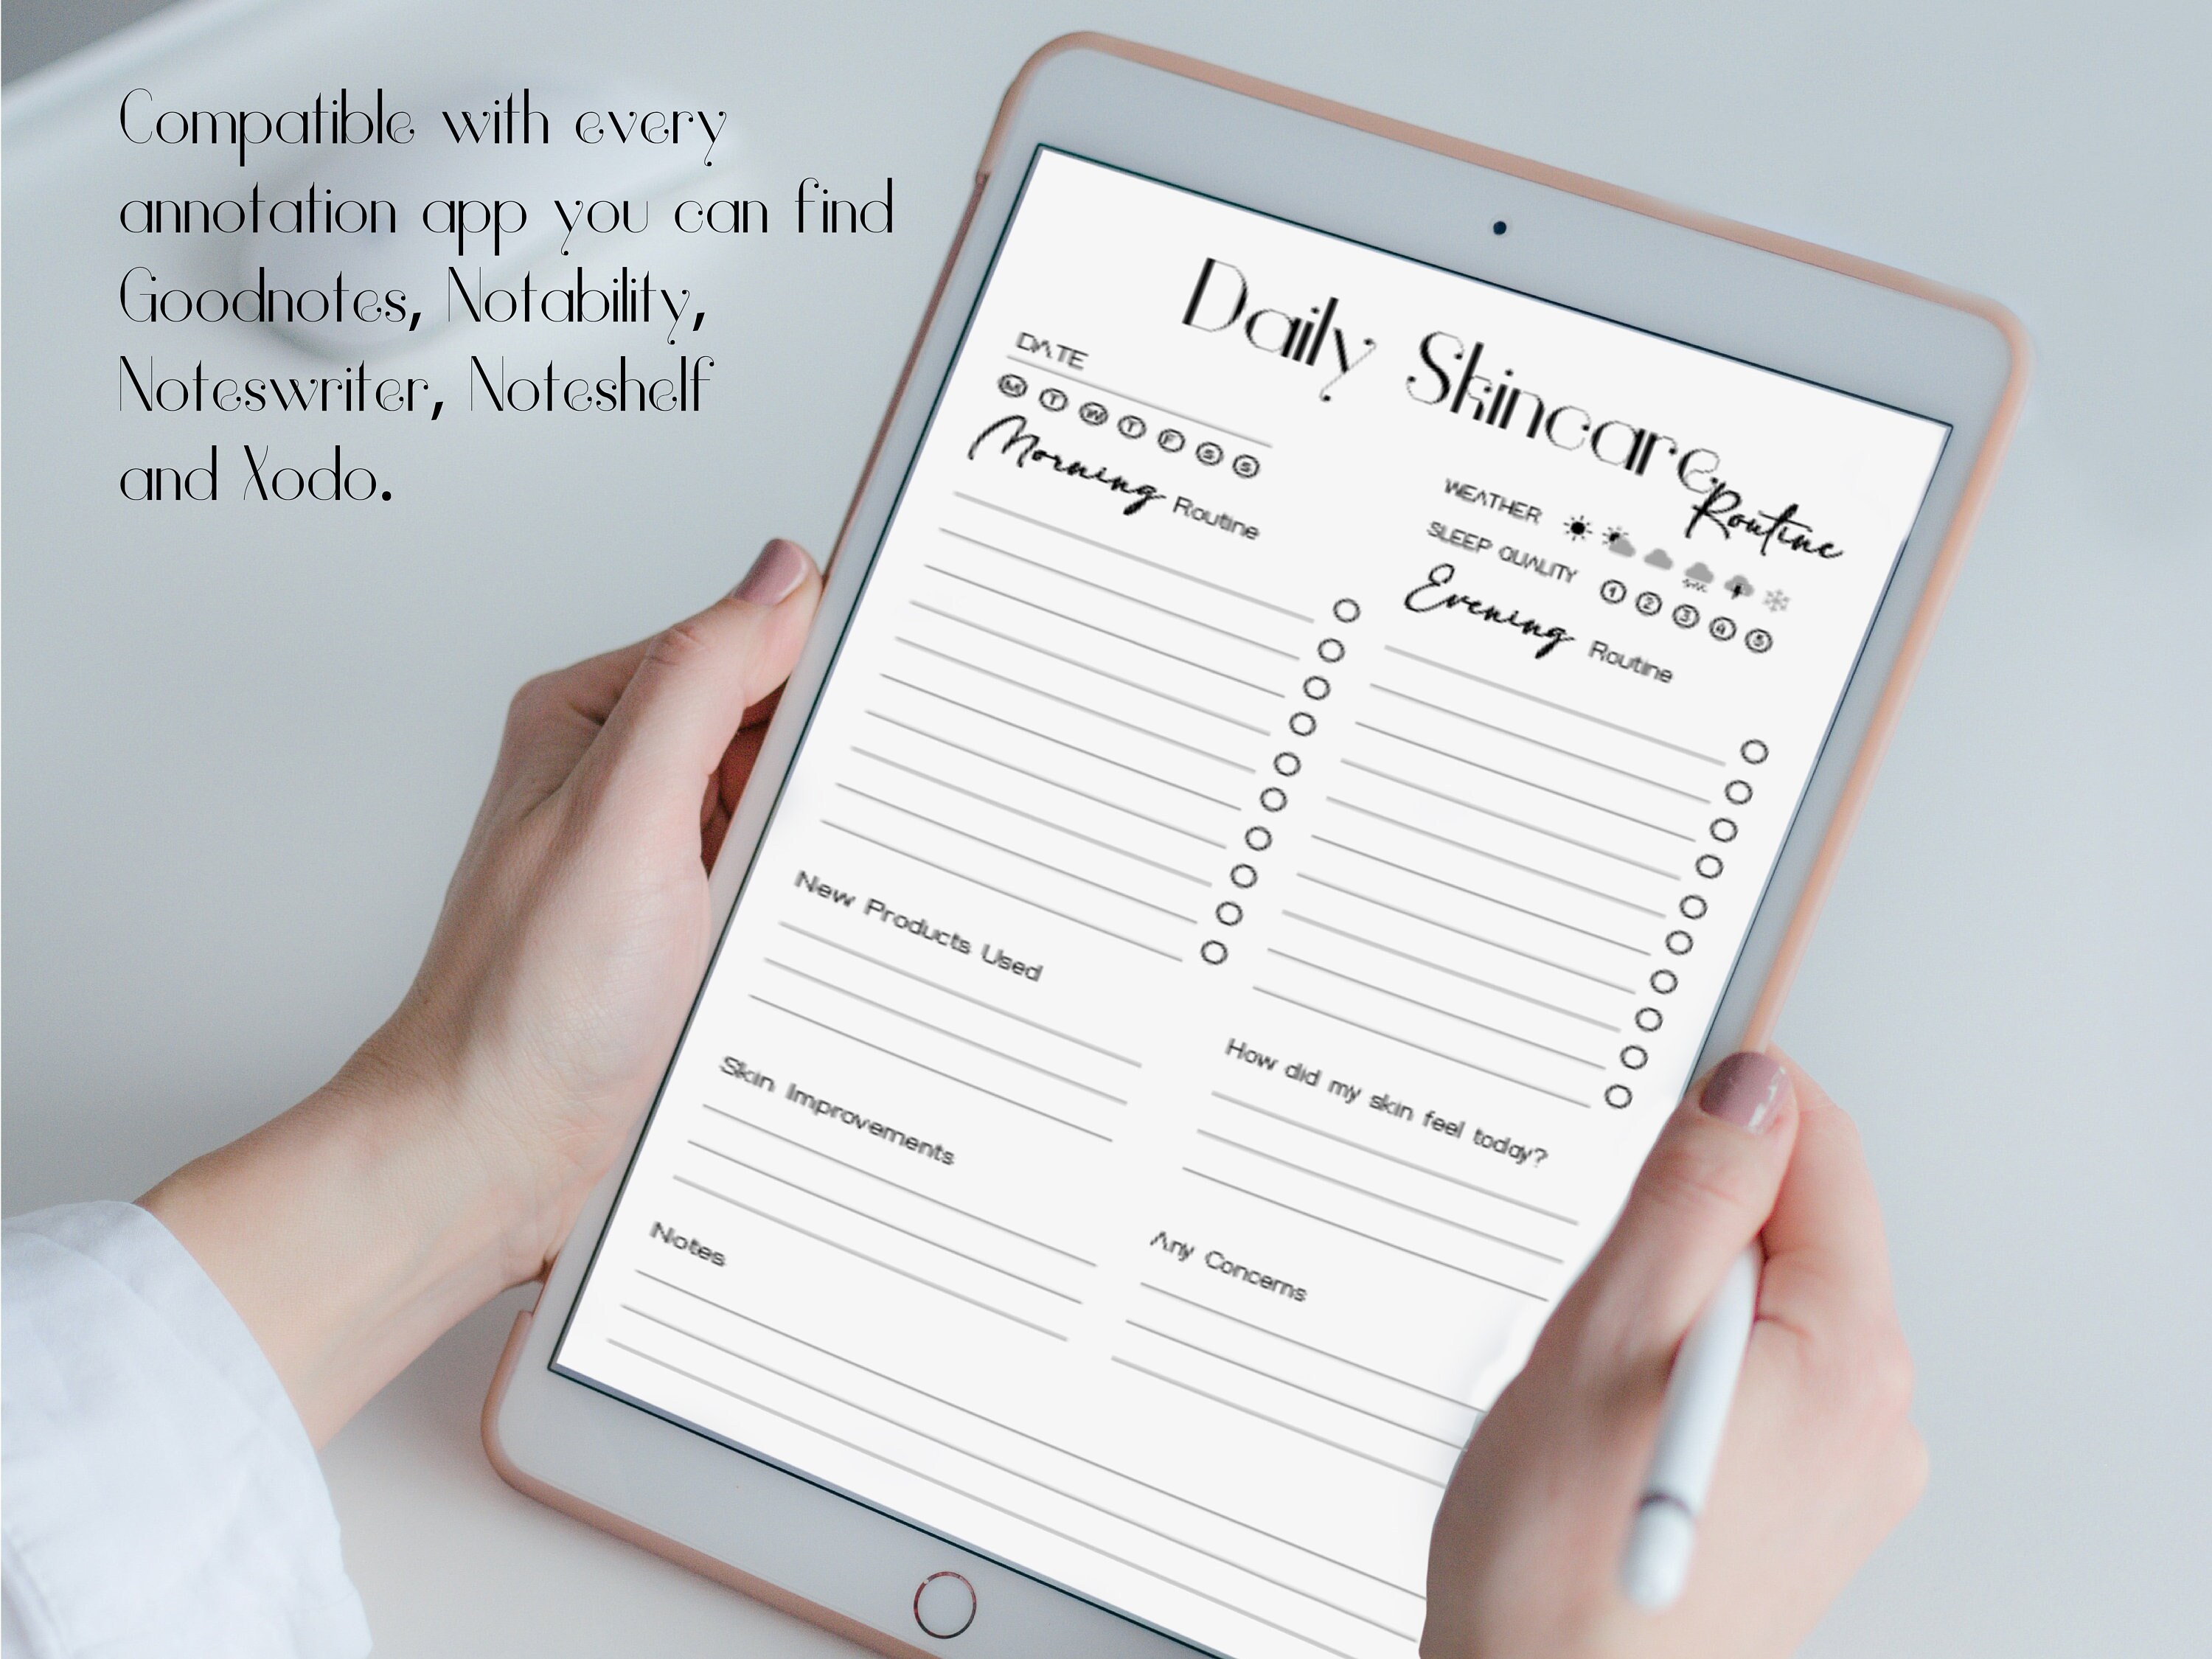 Compatible with every
annotation app you can find
Goodnotes, Notability,
Noteswriter, Noteshelf
and Xodo.
Daily Skincare
Routine
DATE
M T W T F S S
WEATHER
SLEEP QUALITY 1 2 3 4 5
Morning Routine
Evening Routine
New Products Used
How did my skin feel today?
Skin Improvements
Any Concerns
Notes